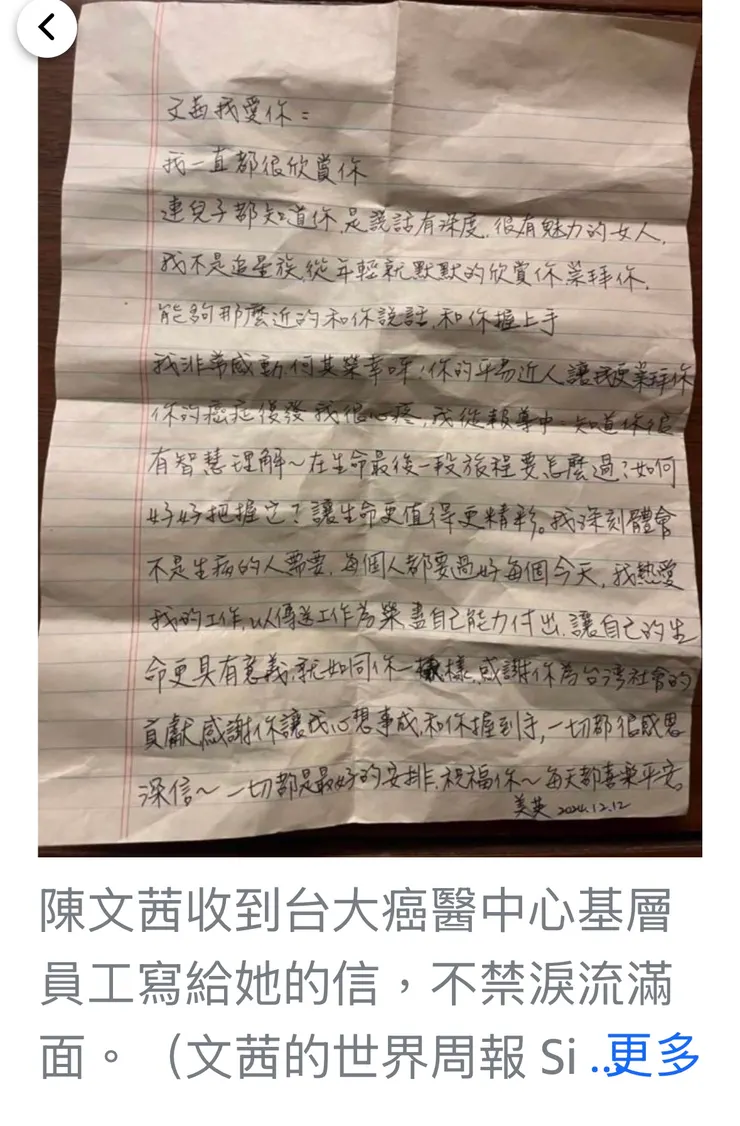 文茜我愛你：
我一直都很欣賞你
連兒子都知道你是說話有深度，很有魅力的女人，
我不是追星族，從年輕就默默的欣賞你崇拜你，
能夠那麼近的和你說話，和你握上手
我非常感動，何其榮幸呀！你的平易近人讓我更崇拜你
你的癌症復發我很心疼，我從報導中，知道你很
有智慧理解～在生命最後一段旅程要怎麼過？如何
好好把握它？讓生命更值得更精彩。我深刻體會
不是生病的人需要，每個人都要過好每個今天，我熱愛
我的工作，以傳送工作為榮盡自己能力付出，讓自己的生
命更具有意義，就如同你一樣，感謝你為台湾社會的
貢獻，感謝你讓我心想事成，和你握到手，一切都很感恩
深信～一切都是最好的安排，祝福你～每天都喜樂平安。
美英 2024.12.12
陳文茜收到台大癌醫中心基層
員工寫給她的信，不禁淚流滿
面。（文茜的世界周報 Si ...更多